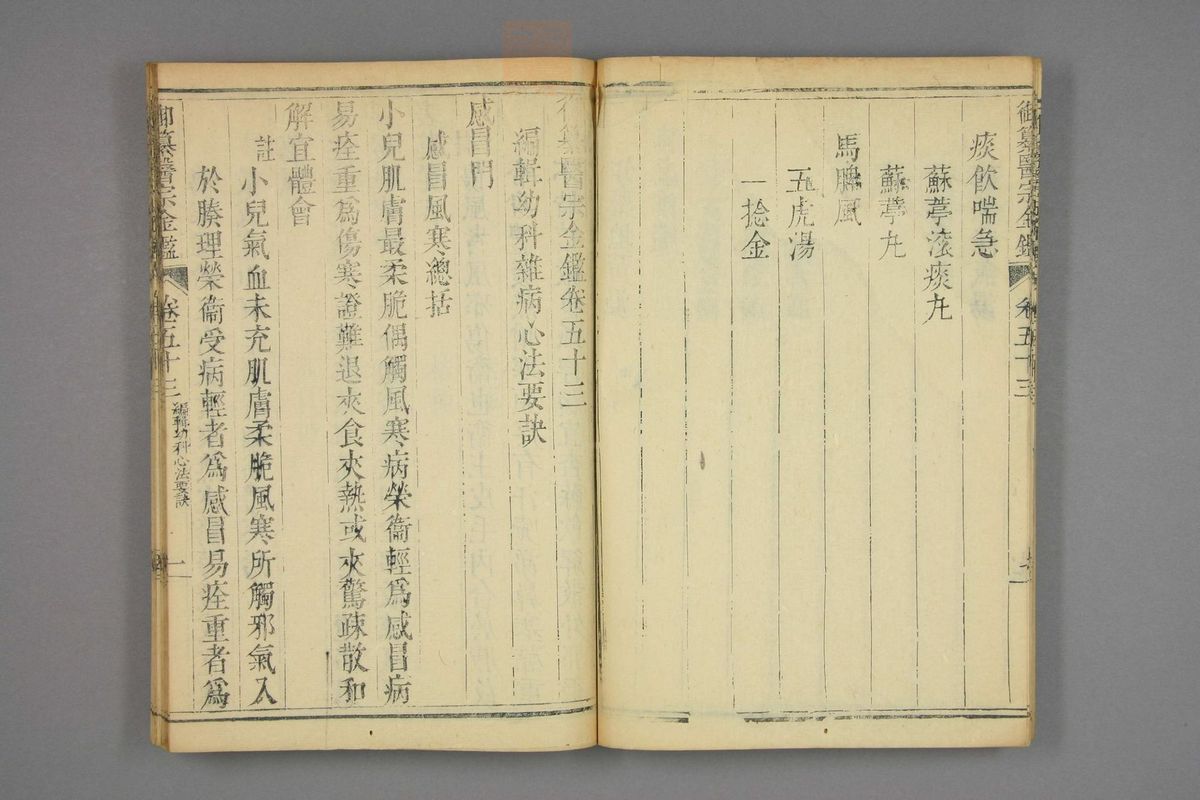 御纂醫宗金鑑 卷五十三
痰飲喘急
蘇葶滚痰丸
蘇葶丸
馬脾風
五虎湯
一捻金
御纂醫宗金鑑卷五十三
編輯幼科雜病心法要訣
感冒門
感冒風寒總括
小兒肌膚最柔脆偶觸風寒病榮衞輕爲感冒病
易痊重爲傷寒證難退夾食夾熱或夾驚疎散和
解宜體會
註小兒氣血未充肌膚柔脆風寒所觸邪氣入
於腠理榮衞受病輕者爲感冒易痊重者爲
御纂醫宗金鑑 卷五十三 編輯幼科心法要訣 一